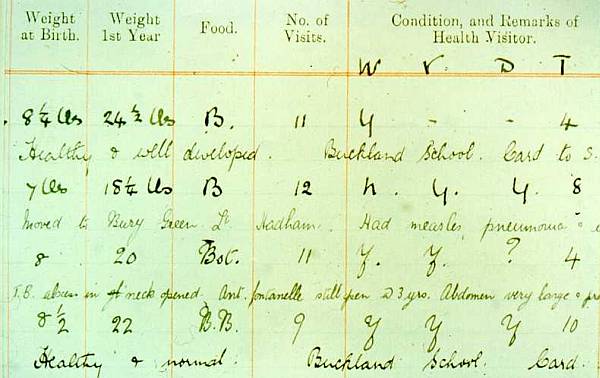 Weight at Birth. Weight 1st Year Food. No. of Visits. Condition, and Remarks of Health Visitor.
W V. D T
8¼ lbs 24½ lbs B. 11 Y - - 4
Healthy & well developed. Buckland School. Card to S.
7 lbs 18¼ lbs B 12 n. Y. Y. 8
Moved to Bury Green Lt Hadham. Had measles, pneumonia &
8 20 Bot. 11 Y. Y. ? 4
T.B. absess in neck opened. Ant. fontanelle still open @ 3 yrs. Abdomen very large &
8½ 22 B.B. 9 Y Y Y 10
Healthy & normal. Buckland School. Card.